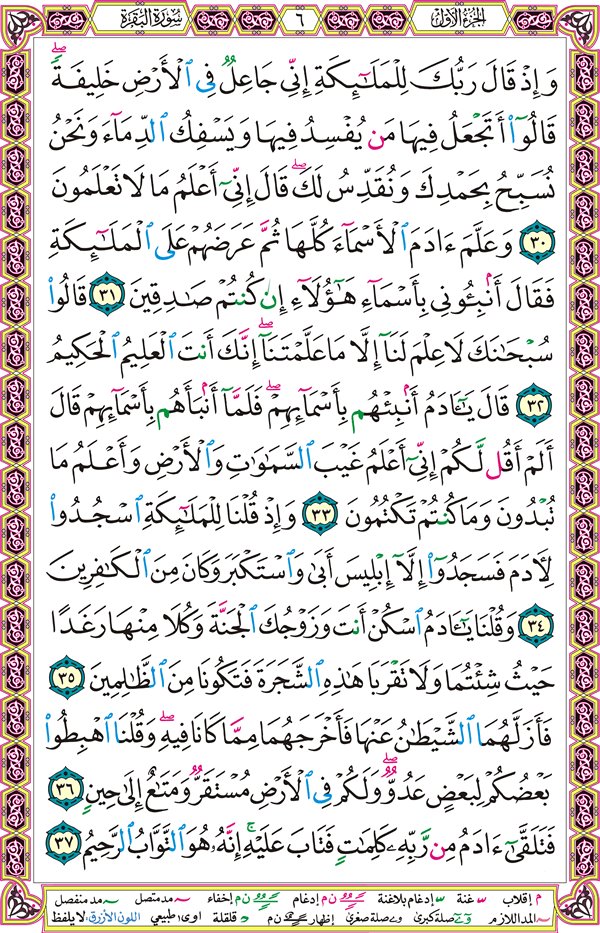 سُورَةُ البَقَرَة ٦ الجُزءُ الأوّل
وَإِذْ قَالَ رَبُّكَ لِلْمَلَـٰٓئِكَةِ إِنِّى جَاعِلٌ فِى ٱلْأَرْضِ خَلِيفَةًۖ
قَالُوٓا۟ أَتَجْعَلُ فِيهَا مَن يُفْسِدُ فِيهَا وَيَسْفِكُ ٱلدِّمَآءَ وَنَحْنُ
نُسَبِّحُ بِحَمْدِكَ وَنُقَدِّسُ لَكَۖ قَالَ إِنِّىٓ أَعْلَمُ مَا لَا تَعْلَمُونَ
٣٠ وَعَلَّمَ ءَادَمَ ٱلْأَسْمَآءَ كُلَّهَا ثُمَّ عَرَضَهُمْ عَلَى ٱلْمَلَـٰٓئِكَةِ
فَقَالَ أَنۢبِـُٔونِى بِأَسْمَآءِ هَـٰٓؤُلَآءِ إِن كُنتُمْ صَـٰدِقِينَ ٣١ قَالُوا۟
سُبْحَـٰنَكَ لَا عِلْمَ لَنَآ إِلَّا مَا عَلَّمْتَنَآۖ إِنَّكَ أَنتَ ٱلْعَلِيمُ ٱلْحَكِيمُ
٣٢ قَالَ يَـٰٓـَٔادَمُ أَنۢبِئْهُم بِأَسْمَآئِهِمْۖ فَلَمَّآ أَنۢبَأَهُم بِأَسْمَآئِهِمْ قَالَ
أَلَمْ أَقُل لَّكُمْ إِنِّىٓ أَعْلَمُ غَيْبَ ٱلسَّمَـٰوَٰتِ وَٱلْأَرْضِ وَأَعْلَمُ مَا
تُبْدُونَ وَمَا كُنتُمْ تَكْتُمُونَ ٣٣ وَإِذْ قُلْنَا لِلْمَلَـٰٓئِكَةِ ٱسْجُدُوا۟
لِـَٔادَمَ فَسَجَدُوٓا۟ إِلَّآ إِبْلِيسَ أَبَىٰ وَٱسْتَكْبَرَ وَكَانَ مِنَ ٱلْكَـٰفِرِينَ
٣٤ وَقُلْنَا يَـٰٓـَٔادَمُ ٱسْكُنْ أَنتَ وَزَوْجُكَ ٱلْجَنَّةَ وَكُلَا مِنْهَا رَغَدًا
حَيْثُ شِئْتُمَا وَلَا تَقْرَبَا هَـٰذِهِ ٱلشَّجَرَةَ فَتَكُونَا مِنَ ٱلظَّـٰلِمِينَ ٣٥
فَأَزَلَّهُمَا ٱلشَّيْطَـٰنُ عَنْهَا فَأَخْرَجَهُمَا مِمَّا كَانَا فِيهِۖ وَقُلْنَا ٱهْبِطُوا۟
بَعْضُكُمْ لِبَعْضٍ عَدُوٌّۖ وَلَكُمْ فِى ٱلْأَرْضِ مُسْتَقَرٌّ وَمَتَـٰعٌ إِلَىٰ حِينٍ ٣٦
فَتَلَقَّىٰٓ ءَادَمُ مِن رَّبِّهِۦ كَلِمَـٰتٍ فَتَابَ عَلَيْهِۚ إِنَّهُۥ هُوَ ٱلتَّوَّابُ ٱلرَّحِيمُ ٣٧
م إقلاب غنة إدغام بلاغنة ن م إدغام ن م إخفاء مد متصل مد منفصل
المد اللازم صلة كبرى صلة صغرى إظهار ن م قلقلة اوى؛ طبيعي اللون الأزرق: لا يلفظ